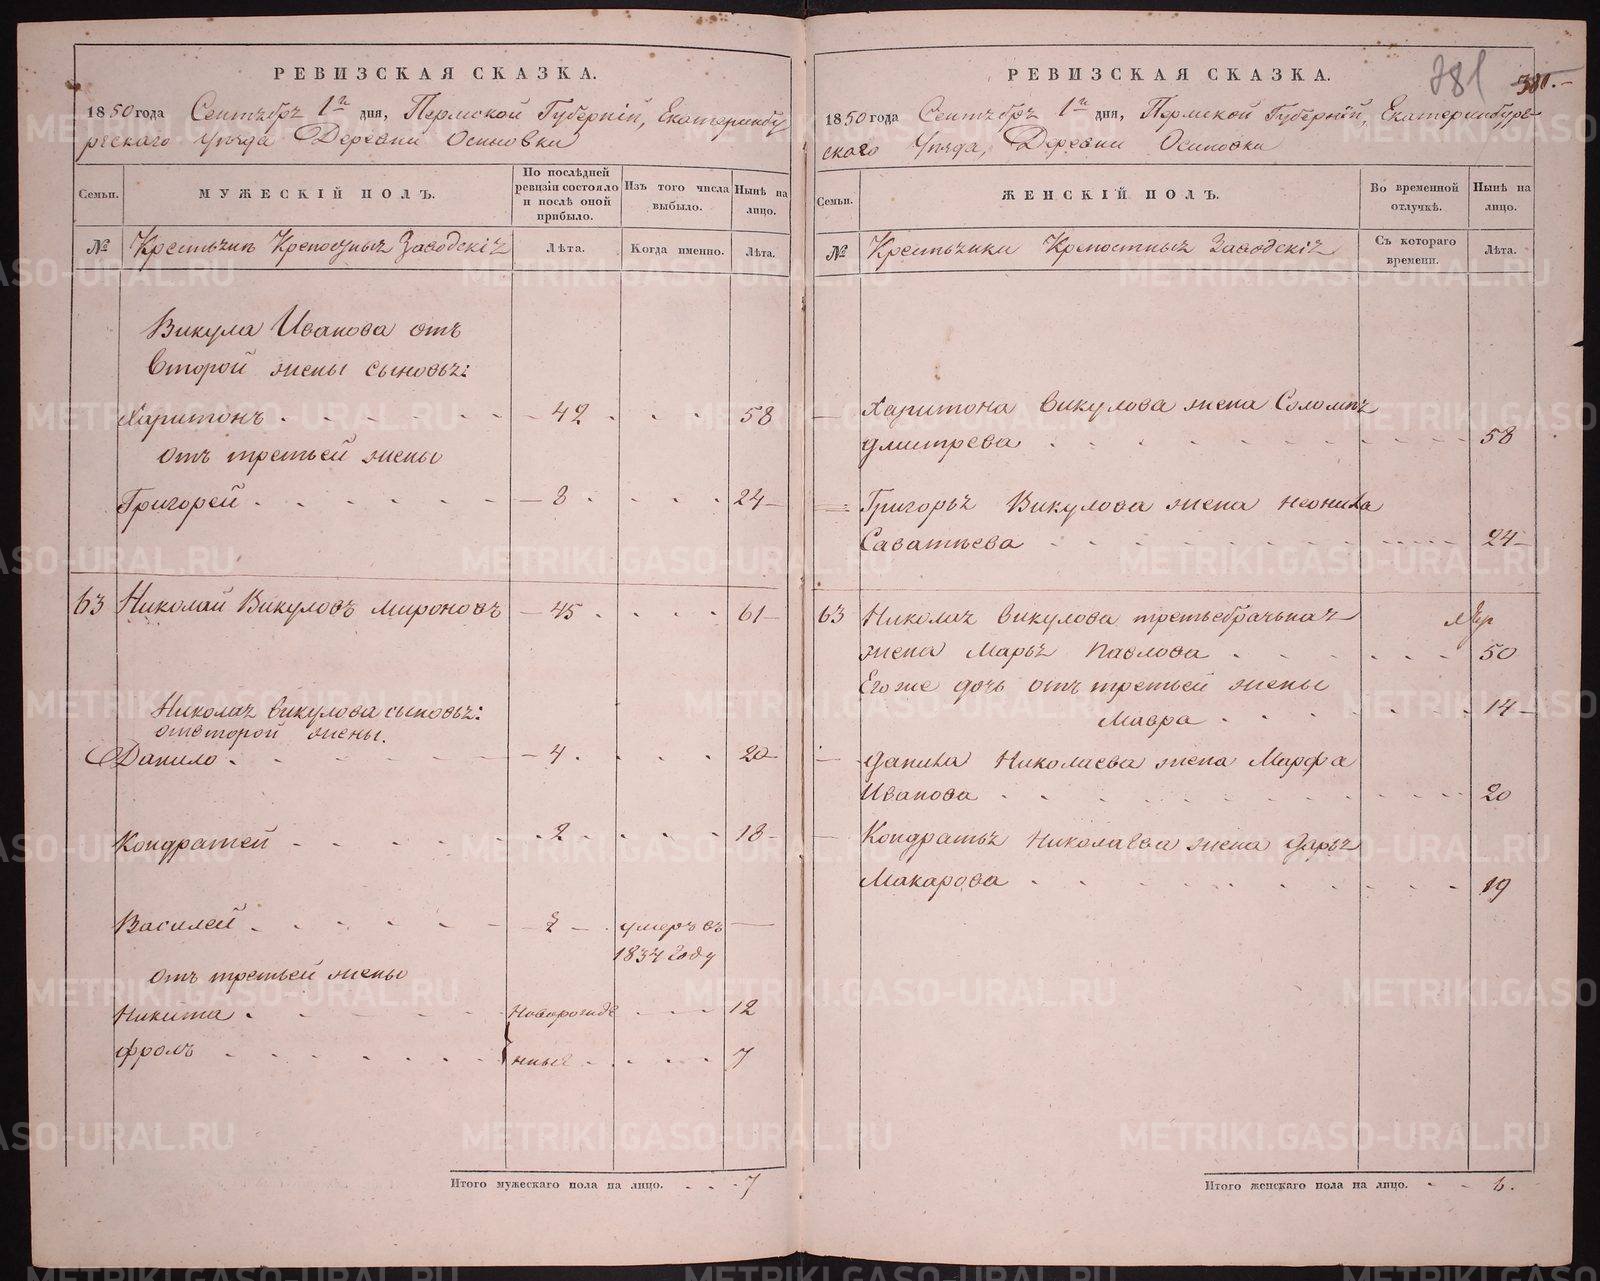 РЕВИЗСКАЯ СКАЗКА.
1850 года Сентября 1го дня, Пермской Губерній, Екатеринбу
ргскаго Уѣзда Деревни Осиновки
Семьи.
МУЖЕСКІЙ ПОЛЪ.
По послѣдней ревизіи состояло и послѣ оной прибыло.
Изъ того числа выбыло.
Нынѣ на лицо.
№
Крестьянъ Крепостныхъ Заводскіхъ
Лѣта.
Когда именно.
Лѣта.
Викула Иванова отъ
второй жены сыновья:
Харитонъ 42 58
отъ третьей жены
Григорей 8 24
63 Николай Викуловъ Мироновъ 45 61
Николая Викулова сыновья:
отвторой жены.
Данило 4 20
Кондратей 2 18
Василей 2 умеръ въ
1837 году
отъ третьей жены
Никита Новорожде 12
Фролъ нные 7
Итого мужескаго пола на лицо. 7
РЕВИЗСКАЯ СКАЗКА.
381
381.
1850 года Сентября 1го дня, Пермской Губерній, Екатеринбург-
скаго Уѣзда, Деревни Осиновки
Семьи.
ЖЕНСКІЙ ПОЛЪ.
Во временной отлучкѣ.
Нынѣ на лицо.
№
Крестьянки Крепостныхъ Заводскіхъ
Съ котораго времени.
Лѣта.
Харитона Викулова жена Соломія
Дмитрева 58
Григорья Викулова жена Неонила
Саватѣева 24
63 Николая Викулова третьебрачьная
жена Марья Павлова 50
Егоже дочь отъ третьей жены
Мавра 14
Данила Николаева жена Марфа
Иванова 20
Кондратья Николаева жена Дарья
Макарова 19
Итого женскаго пола на лицо. 6.
METRIKI.GASO-URAL.RU